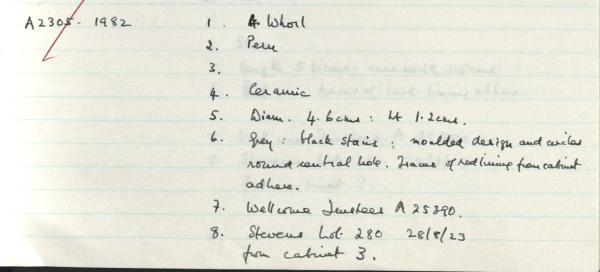 A2305. 1982 1. Whorl
2. Peru
3.
4. Ceramic
5. Diam. 4.6cms : Ht 1.2cms.
6. Grey : black stains : moulded design and circles
round central hole. Traces of red lining from cabinet
adhere.
7. Wellcome Trustees A 25390.
8. Stevens Lot 280 28/8/23
from cabinet 3.